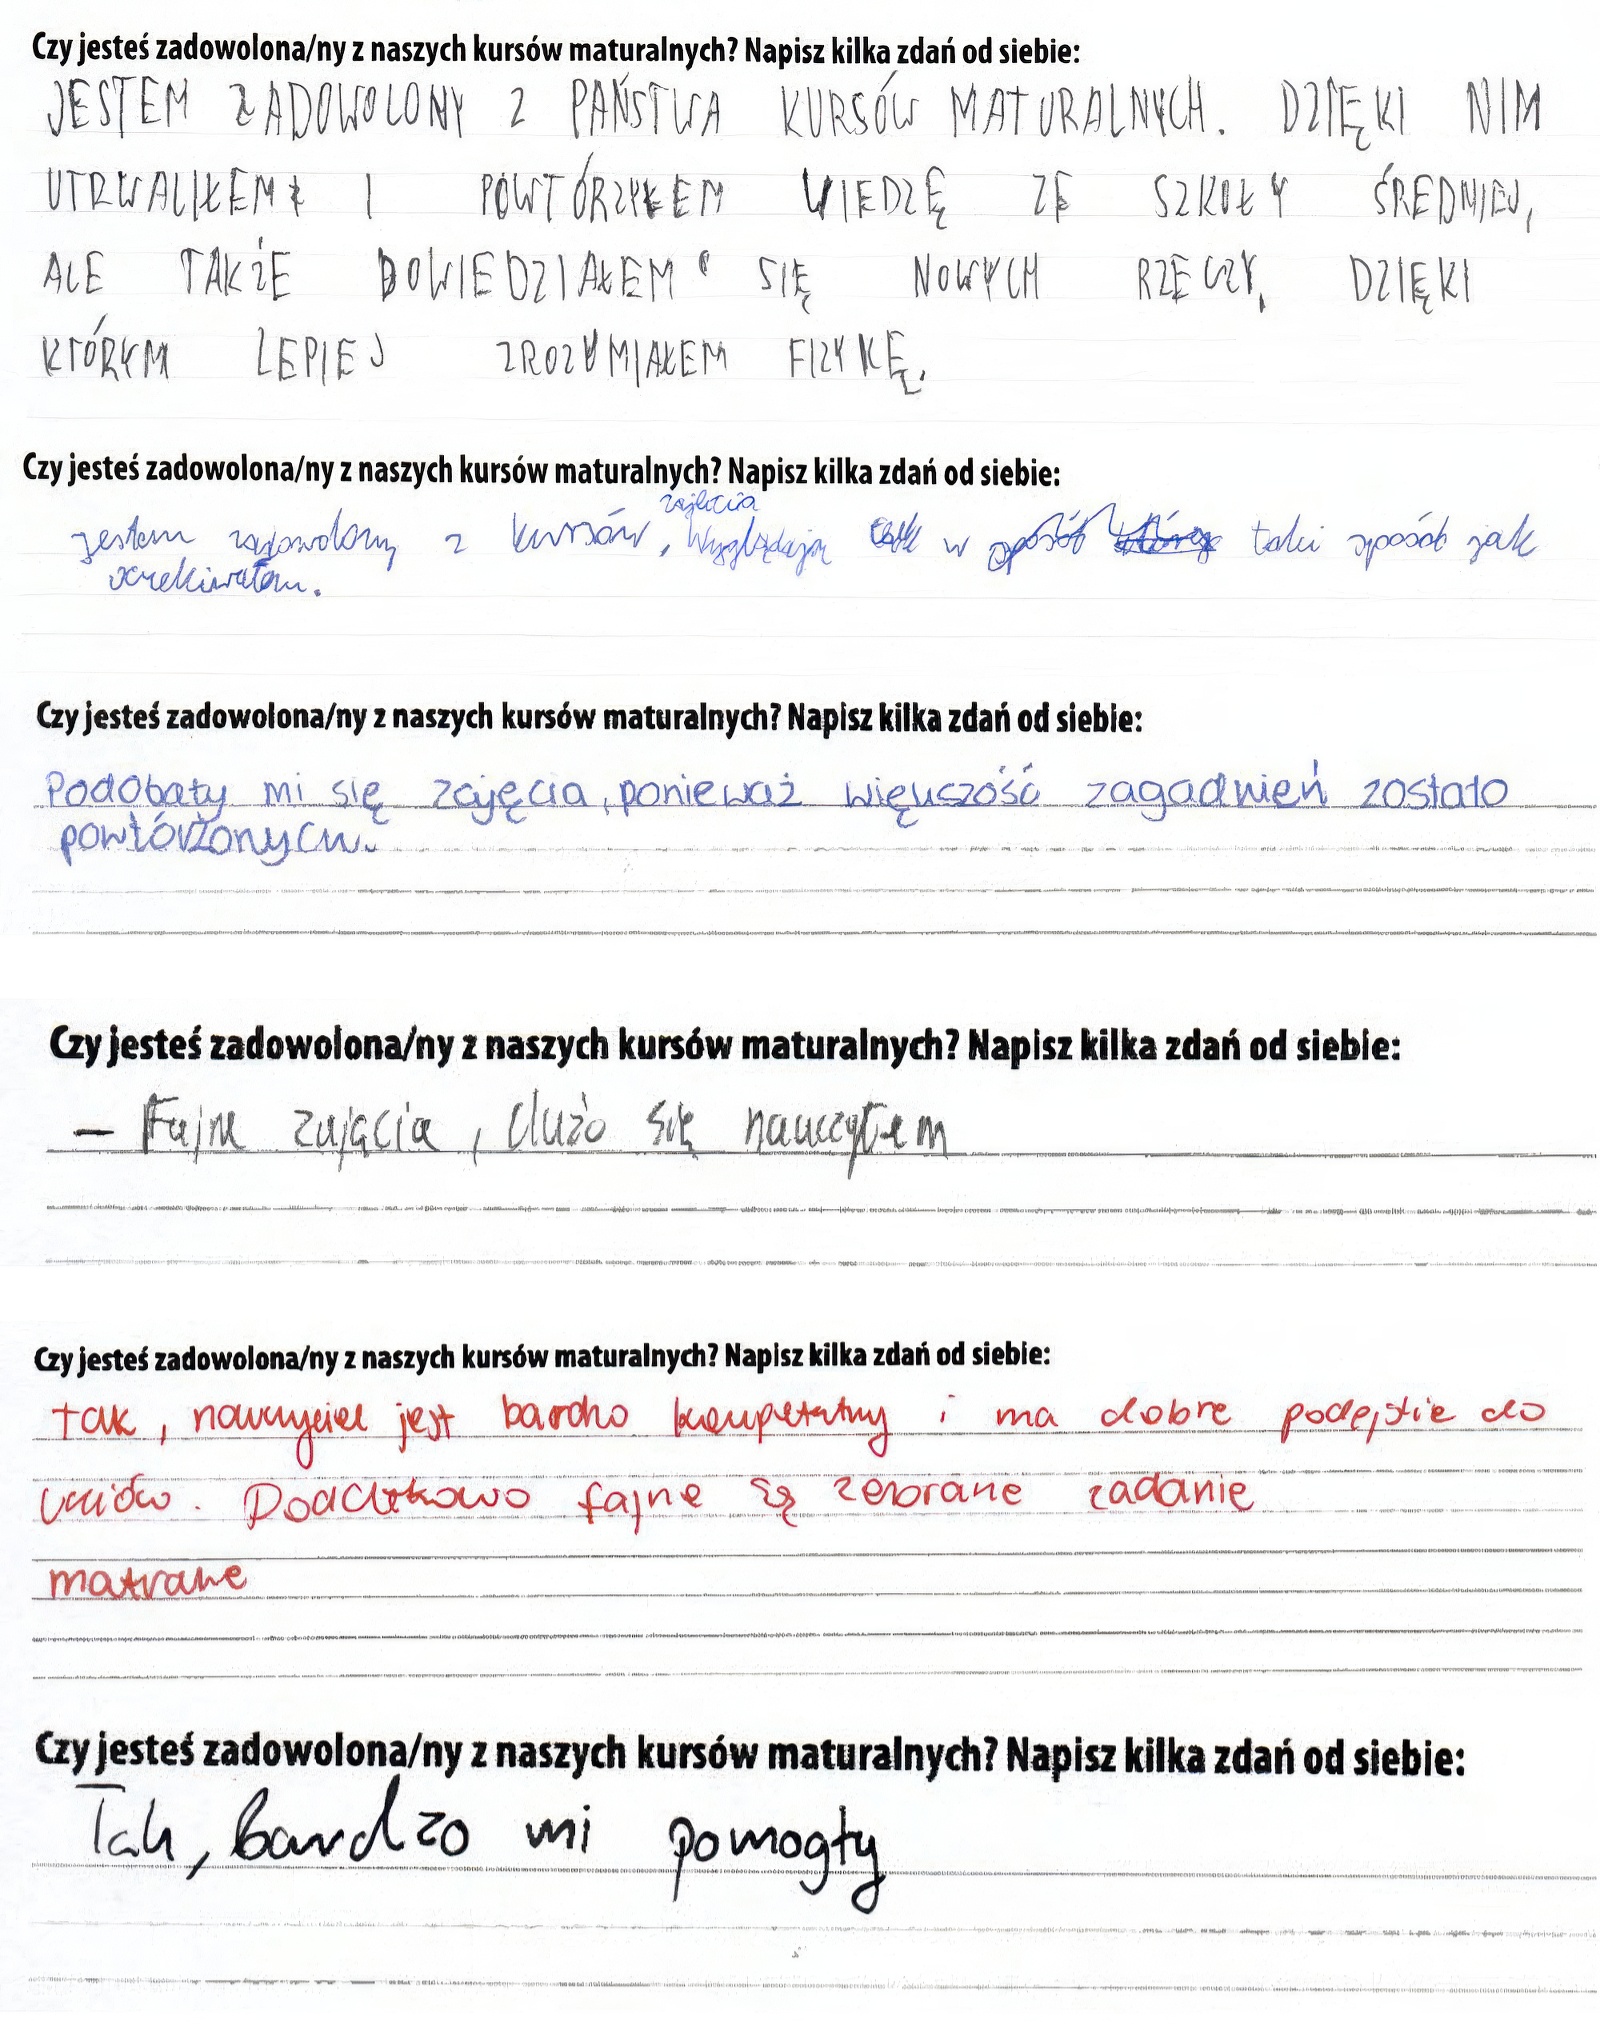 Czy jesteś zadowolona/ny z naszych kursów maturalnych? Napisz kilka zdań od siebie:
JESTEM ZADOWOLONY Z PAŃSTWA KURSÓW MATURALNYCH. DZIĘKI NIM
UTRWALIŁEM I POWTÓRZYŁEM WIEDZĘ ZE SZKOŁY ŚREDNIEJ,
ALE TAKŻE DOWIEDZIAŁEM SIĘ NOWYCH RZECZY, DZIĘKI
KTÓRYM LEPIEJ ZROZUMIAŁEM FIZYKĘ.
Czy jesteś zadowolona/ny z naszych kursów maturalnych? Napisz kilka zdań od siebie:
zajęcia
jestem zadowolony z kursów, Wyglądają w taki sposób jak
oczekiwałem.
Czy jesteś zadowolona/ny z naszych kursów maturalnych? Napisz kilka zdań od siebie:
Podobały mi się zajęcia, ponieważ większość zagadnień zostało
powtórzonych.
Czy jesteś zadowolona/ny z naszych kursów maturalnych? Napisz kilka zdań od siebie:
– Fajne zajęcia, dużo się nauczyłem
Czy jesteś zadowolona/ny z naszych kursów maturalnych? Napisz kilka zdań od siebie:
tak, nauczyciel jest bardzo kompetetny i ma dobre podejście do
uczniów. Dodatkowo fajne są zebrane zadanie
matrane
Czy jesteś zadowolona/ny z naszych kursów maturalnych? Napisz kilka zdań od siebie:
Tak, bardzo mi pomogły